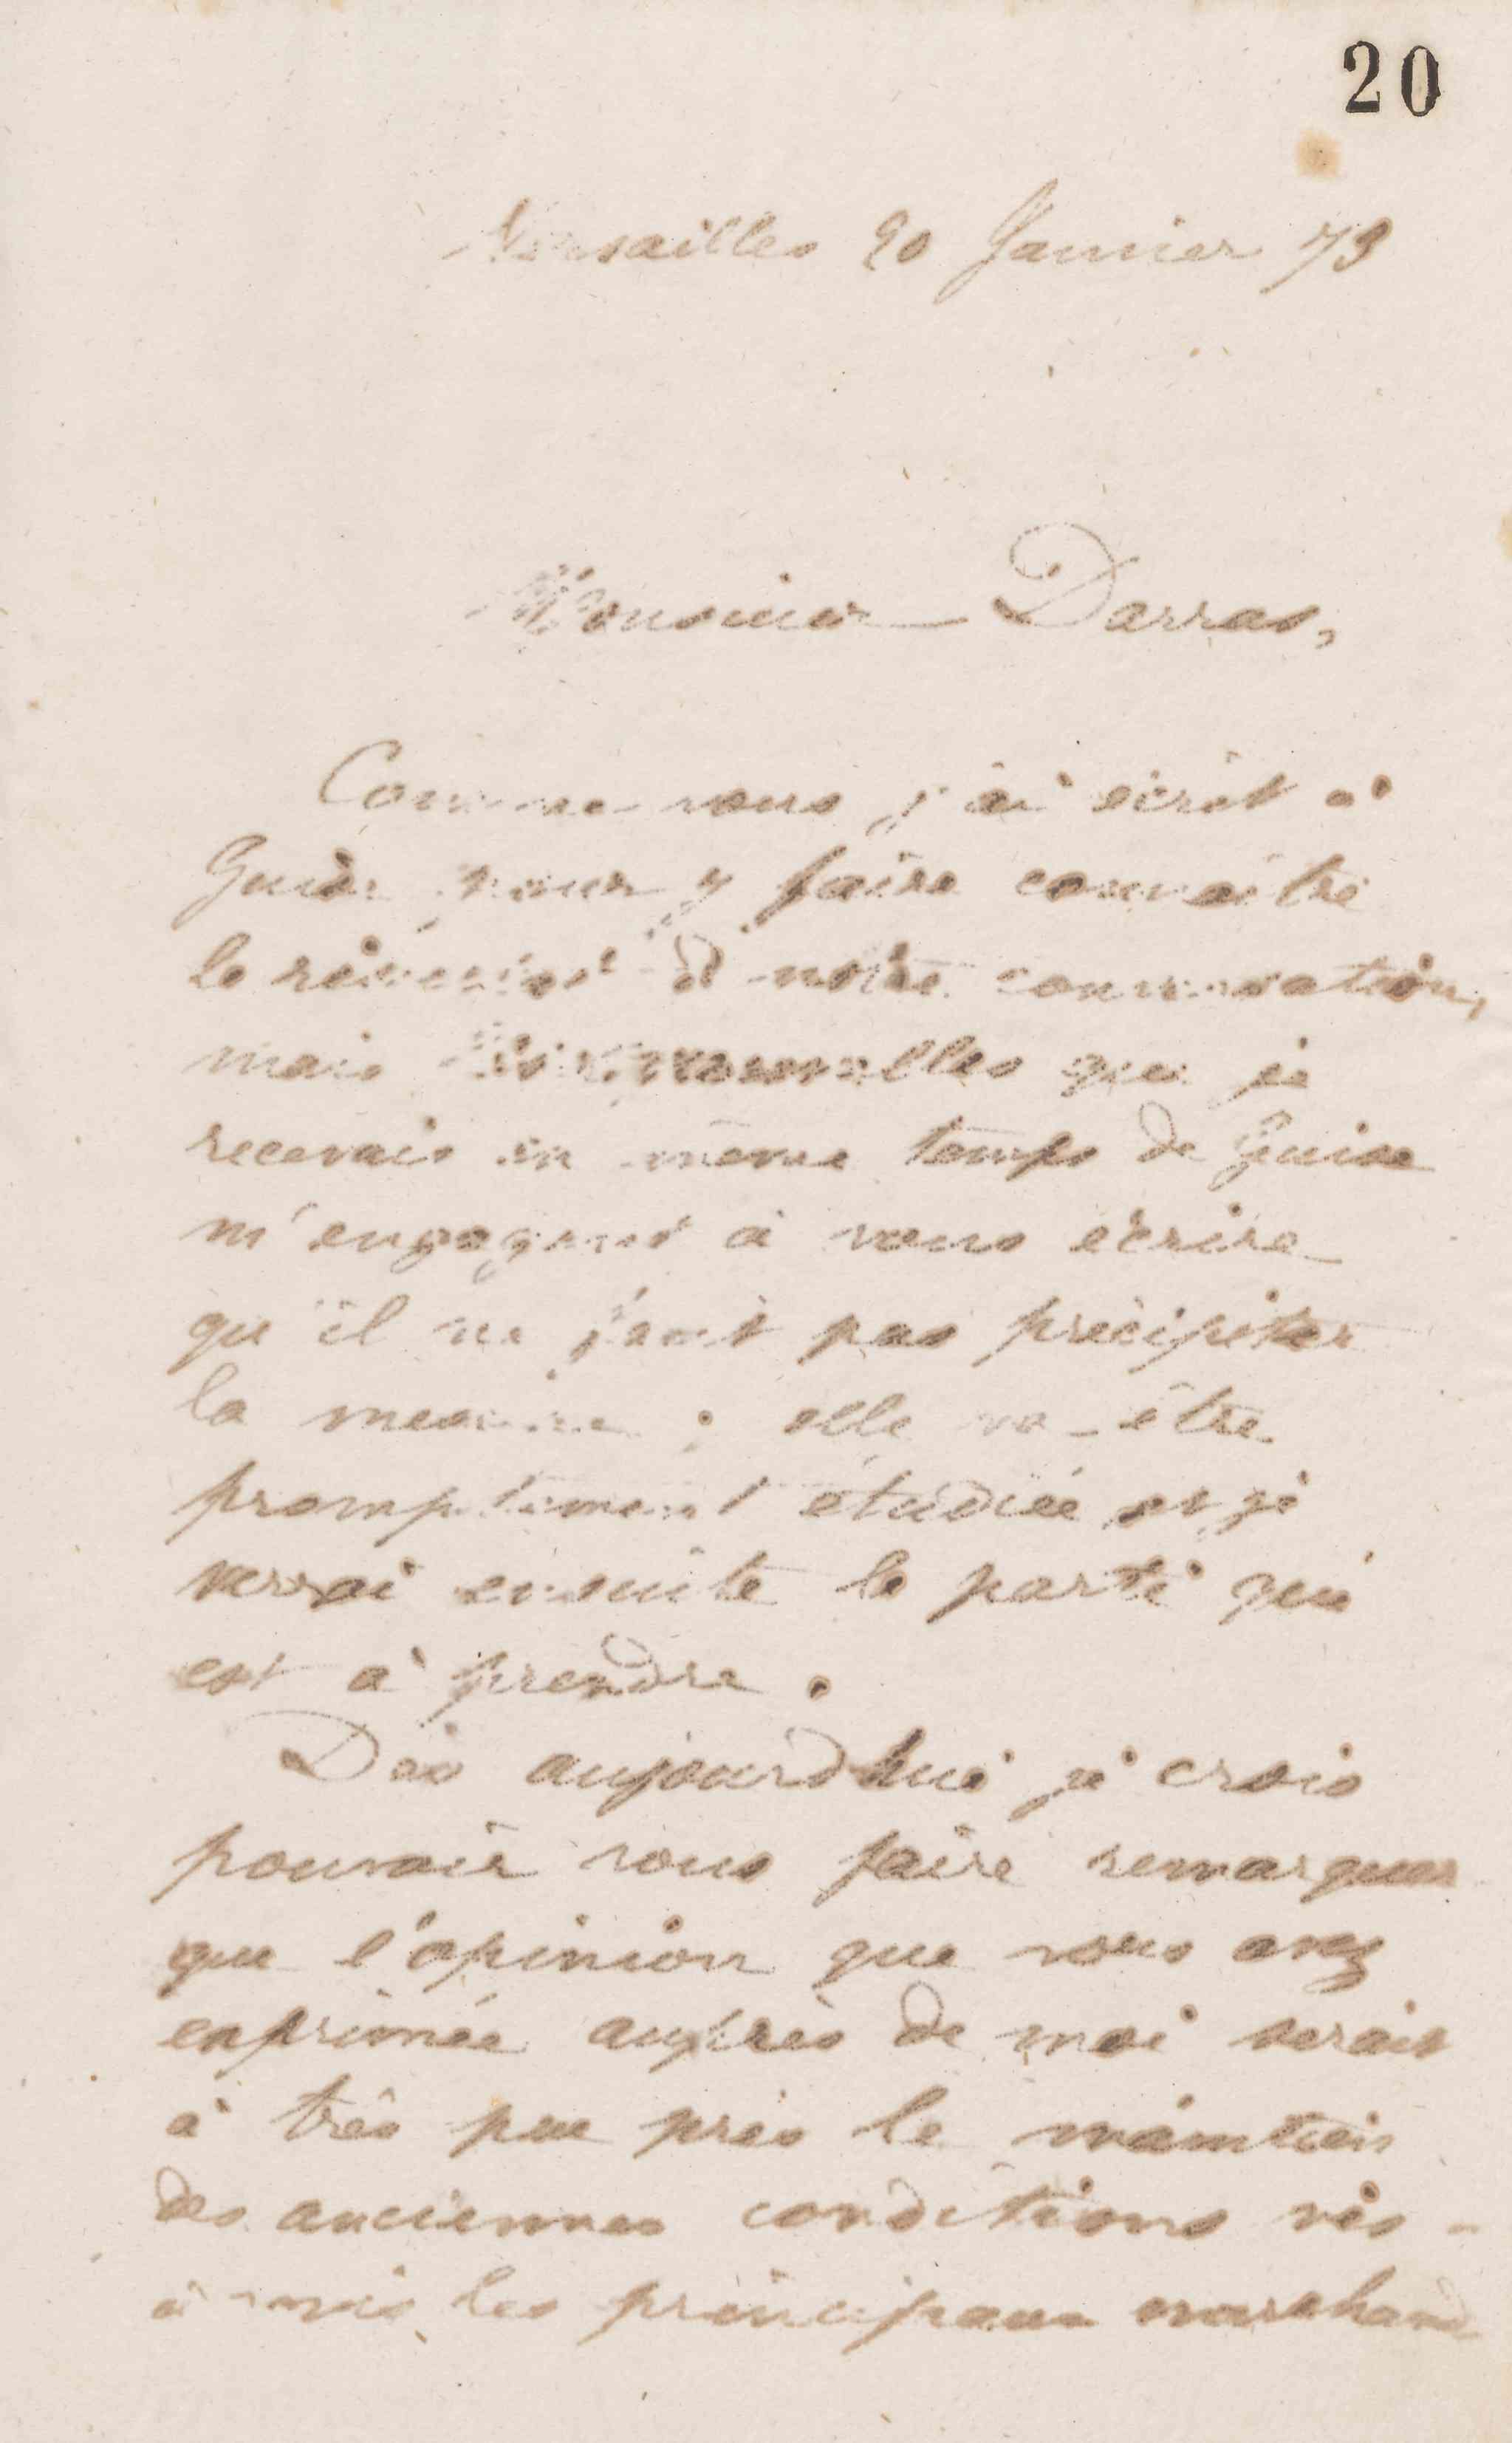 20
Versailles 20 Janvier 73
Monsieur Darras,
Comme vous j'ai écrit à
Guise pour y faire connaître
le résumé d notre conversation,
mais les nouvelles que je
recevais en même temps de Guise
m'engagent à vous écrire
qu'il ne faut pas précipiter
la mesure ; elle va être
promptement étudiée et je
verrai ensuite le parti qui
est à prendre.
Dès aujourdhui je crois
pouvoir vous faire remarquer
que l'opinion que vous avez
exprimée auprès de moi serait
à très peu près le maintien
des anciennes conditions vis-
à vis les principaux marchand